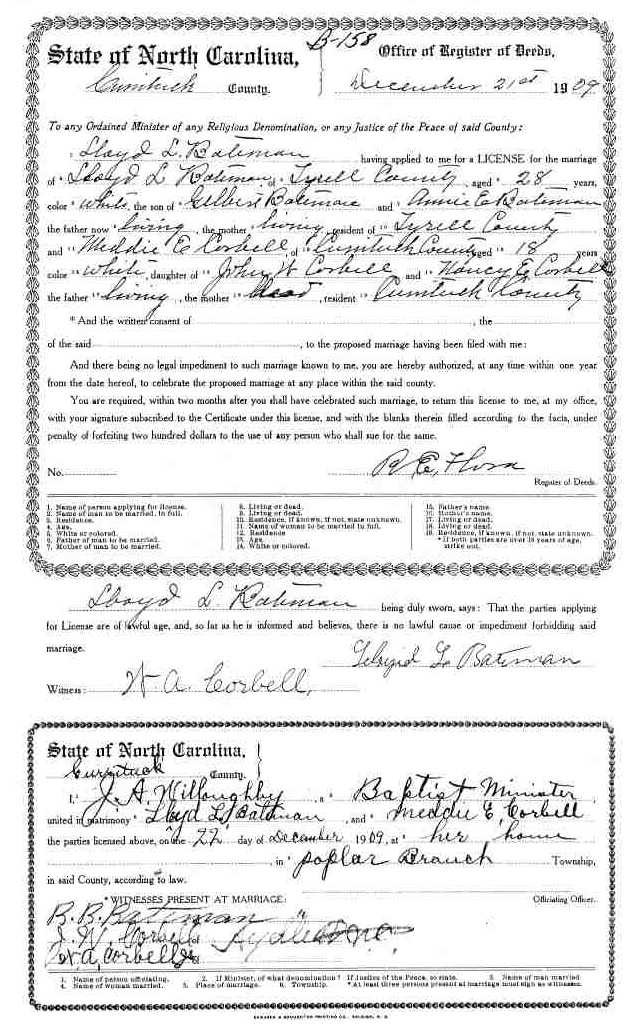 B-158
State of North Carolina, Office of Register of Deeds,
Currituck County. December 21st 1909
To any Ordained Minister of any Religious Denomination, or any Justice of the Peace of said County:
Lloyd L. Bateman having applied to me for a LICENSE for the marriage
of Lloyd L Bateman of Tyrell County aged 28 years,
color white, the son of Gilbert Bateman and Annie E Bateman
the father now living, the mother living, resident of Tyrell County
and Meddie E Corbell, of Currituck County aged 18 years
color white, daughter of John W Corbell and Nancy E Corbell
the father living, the mother dead, resident Currituck County
* And the written consent of , the
of the said , to the proposed marriage having been filed with me:
And there being no legal impediment to such marriage known to me, you are hereby authorized, at any time within one year
from the date hereof, to celebrate the proposed marriage at any place within the said county.
You are required, within two months after you shall have celebrated such marriage, to return this license to me, at my office,
with your signature subscribed to the Certificate under this license, and with the blanks therein filled according to the facts, under
penalty of forfeiting two hundred dollars to the use of any person who shall sue for the same.
No. R. E. Flora
Register of Deeds.
1. Name of person applying for license. 8. Living or dead. 15. Father's name.
2. Name of man to be married, in full. 9. Living or dead. 16. Mother's name.
3. Residence. 10. Residence, if known, if not, state unknown. 17. Living or dead.
4. Age. 11. Name of woman to be married in full. 18. Living or dead.
5. White or colored. 12. Residence 19. Residence, if known, if not, state unknown.
6. Father of man to be married. 13. Age. * If both parties are over 18 years of age,
7. Mother of man to be married. 14. White or colored. strike out.
Lloyd L. Bateman being duly sworn, says: That the parties applying
for License are of lawful age, and, so far as he is informed and believes, there is no lawful cause or impediment forbidding said
marriage.
L. Bateman
Witness: W. A. Corbell,
State of North Carolina,
Currituck County.
I, J. A Willoughby, a Baptist Minister,
united in matrimony Lloyd L. Bateman and Meddie E. Corbell
the parties licensed above, on the 22 day of December 1909, at her home
, in Poplar Branch Township,
in said County, according to law.
*WITNESSES PRESENT AT MARRIAGE: Officiating Officer.
B. B. Bateman "
J. W. Corbell of
W. A. Corbell of
1. Name of person officiating. 2. If Minister, of what denomination? If Justice of the Peace, so state. 3. Name of man married
4. Name of woman married. 5. Place of marriage. 6. Township. *At least three persons present at marriage must sign as witnesses.
EDWARDS & BROUGHTON PRINTING CO., RALEIGH, N. C.